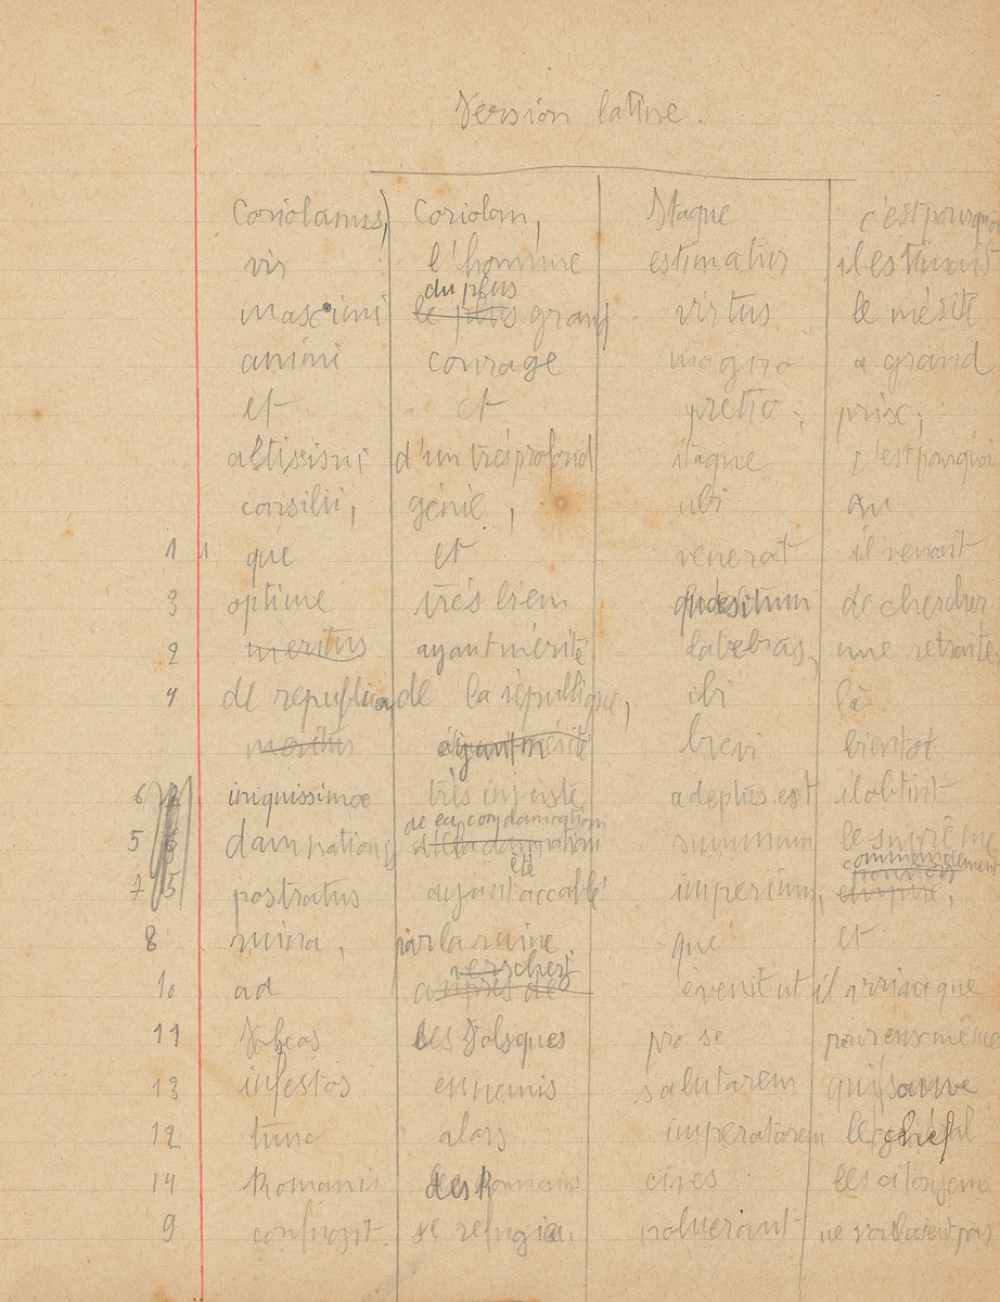 Version latine.
Coriolanus, Coriolan, Itaque c'est pourquoi
vir l'homme estimatur il estimait
du plus
maximi le plus grand virtus le mérite
animi courage magno a grand
et et pretio, prix;
altissimi d'un très profond itaque c'est pourquoi
consilii, génie, ubi ou
1 1 que et venerat il venait
3 optime très bien quaesitum de chercher
2 meritus ayant mérité latebras, une retraite
4 de republica de la république, ibi là
meritus ayant mérité brevi bientot
6 iniquissimae très injuste adeptus est il obtint
de ea condamnation
5 6 damnationis de la damnation summum le suprême
été commandement
7 5 postratus ayant accablé imperium, empire,
8 ruina, par la ruine, que et
vers chez
10 ad auprès de evenit ut il arriva que
11 Volscos les Volsques pro se pour eux même
13 infestos ennemis salutarem qui sauve
12 tunc alors imperatorem le chef
14 Romanis des Romains cives les citoyens
9 confugit. se refugia. noluerant ne voulaient pas